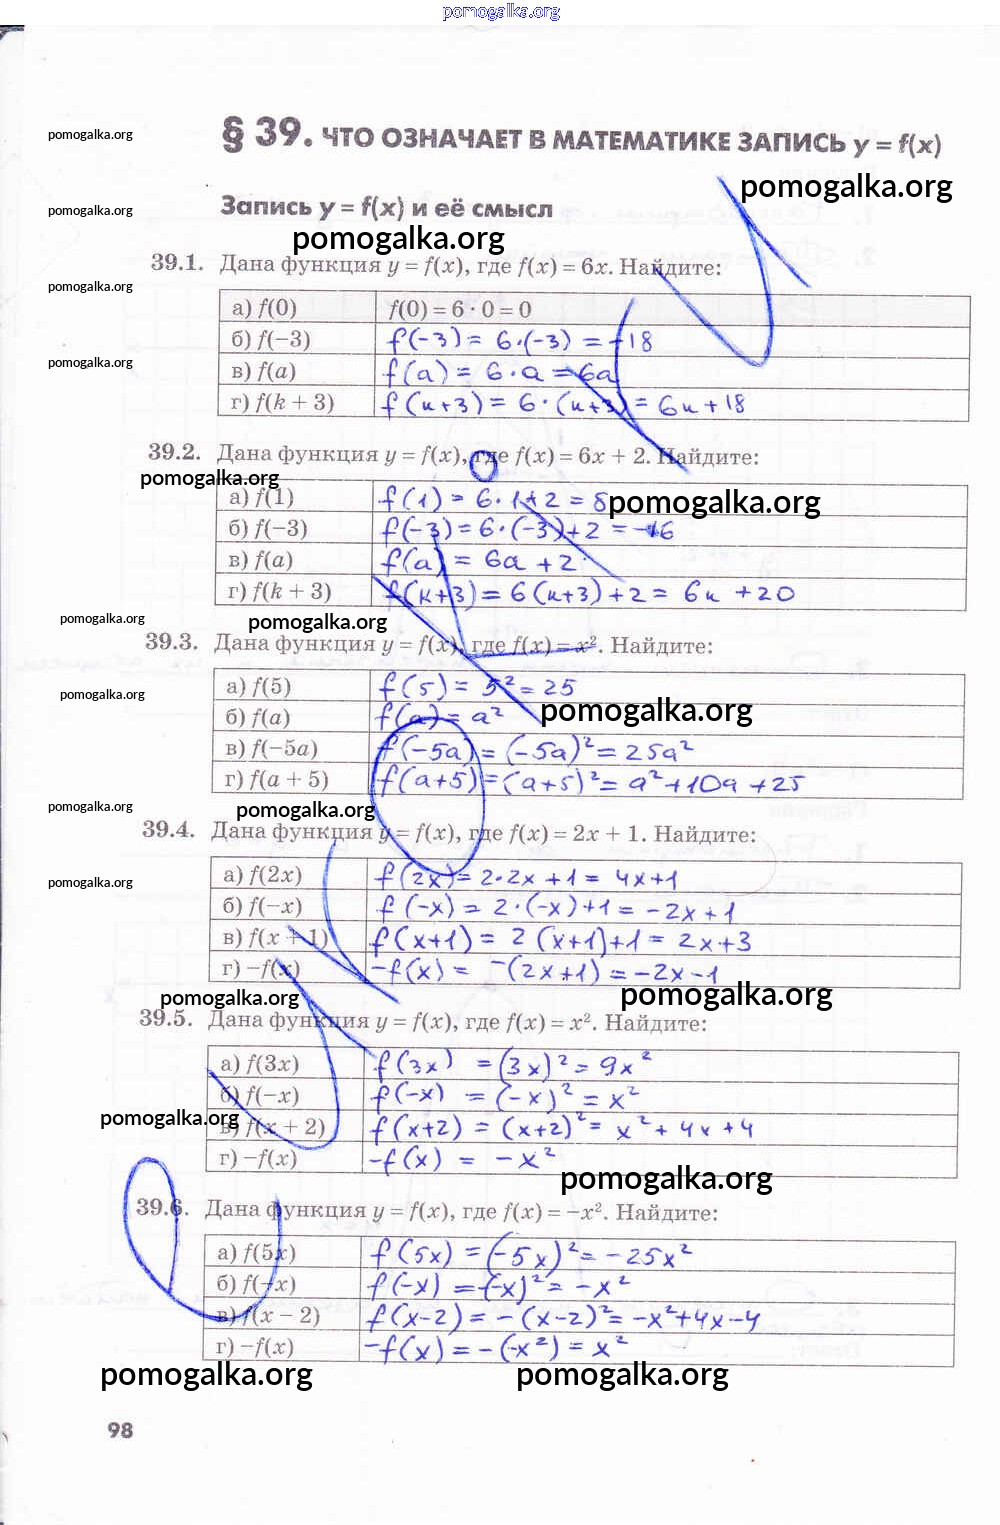 pomogalka.org
§ 39. ЧТО ОЗНАЧАЕТ В МАТЕМАТИКЕ ЗАПИСЬ y = f(x)
pomogalka.org
pomogalka.org
Запись y = f(x) и её смысл
pomogalka.org
pomogalka.org
39.1. Дана функция y = f(x), где f(x) = 6x. Найдите:
pomogalka.org
а) f(0) f(0) = 6 · 0 = 0
б) f(−3) f(-3) = 6·(-3) = -18
pomogalka.org
в) f(a) f(a) = 6·a = 6a
г) f(k + 3) f(к+3) = 6·(к+3) = 6к+18
39.2. Дана функция y = f(x), где f(x) = 6x + 2. Найдите:
pomogalka.org
а) f(1) f(1) = 6·1+2 = 8
pomogalka.org
б) f(−3) f(-3) = 6·(-3)+2 = -16
в) f(a) f(a) = 6a + 2
г) f(k + 3) f(к+3) = 6(к+3)+2 = 6к +20
pomogalka.org
pomogalka.org
39.3. Дана функция y = f(x), где f(x) = x². Найдите:
а) f(5) f(5) = 5² = 25
pomogalka.org
б) f(a) f(a) = a²
pomogalka.org
в) f(−5a) f(-5a) = (-5a)² = 25a²
г) f(a + 5) f(a+5) = (a+5)² = a²+10a+25
pomogalka.org
pomogalka.org
39.4. Дана функция y = f(x), где f(x) = 2x + 1. Найдите:
а) f(2x) f(2x) = 2·2x +1 = 4x+1
pomogalka.org
б) f(−x) f(-x) = 2·(-x)+1 = -2x+1
в) f(x + 1) f(x+1) = 2(x+1)+1 = 2x+3
г) −f(x) -f(x) = -(2x+1) = -2x-1
pomogalka.org
pomogalka.org
39.5. Дана функция y = f(x), где f(x) = x². Найдите:
а) f(3x) f(3x) = (3x)² = 9x²
б) f(−x) f(-x) = (-x)² = x²
pomogalka.org
в) f(x + 2) f(x+2) = (x+2)² = x²+4x+4
г) −f(x) -f(x) = -x²
pomogalka.org
39.6. Дана функция y = f(x), где f(x) = −x². Найдите:
а) f(5x) f(5x) = (-5x)² = -25x²
б) f(−x) f(-x) = (-x)² = -x²
в) f(x − 2) f(x-2) = -(x-2)² = -x²+4x-4
г) −f(x) -f(x) = -(-x²) = x²
pomogalka.org
pomogalka.org
98